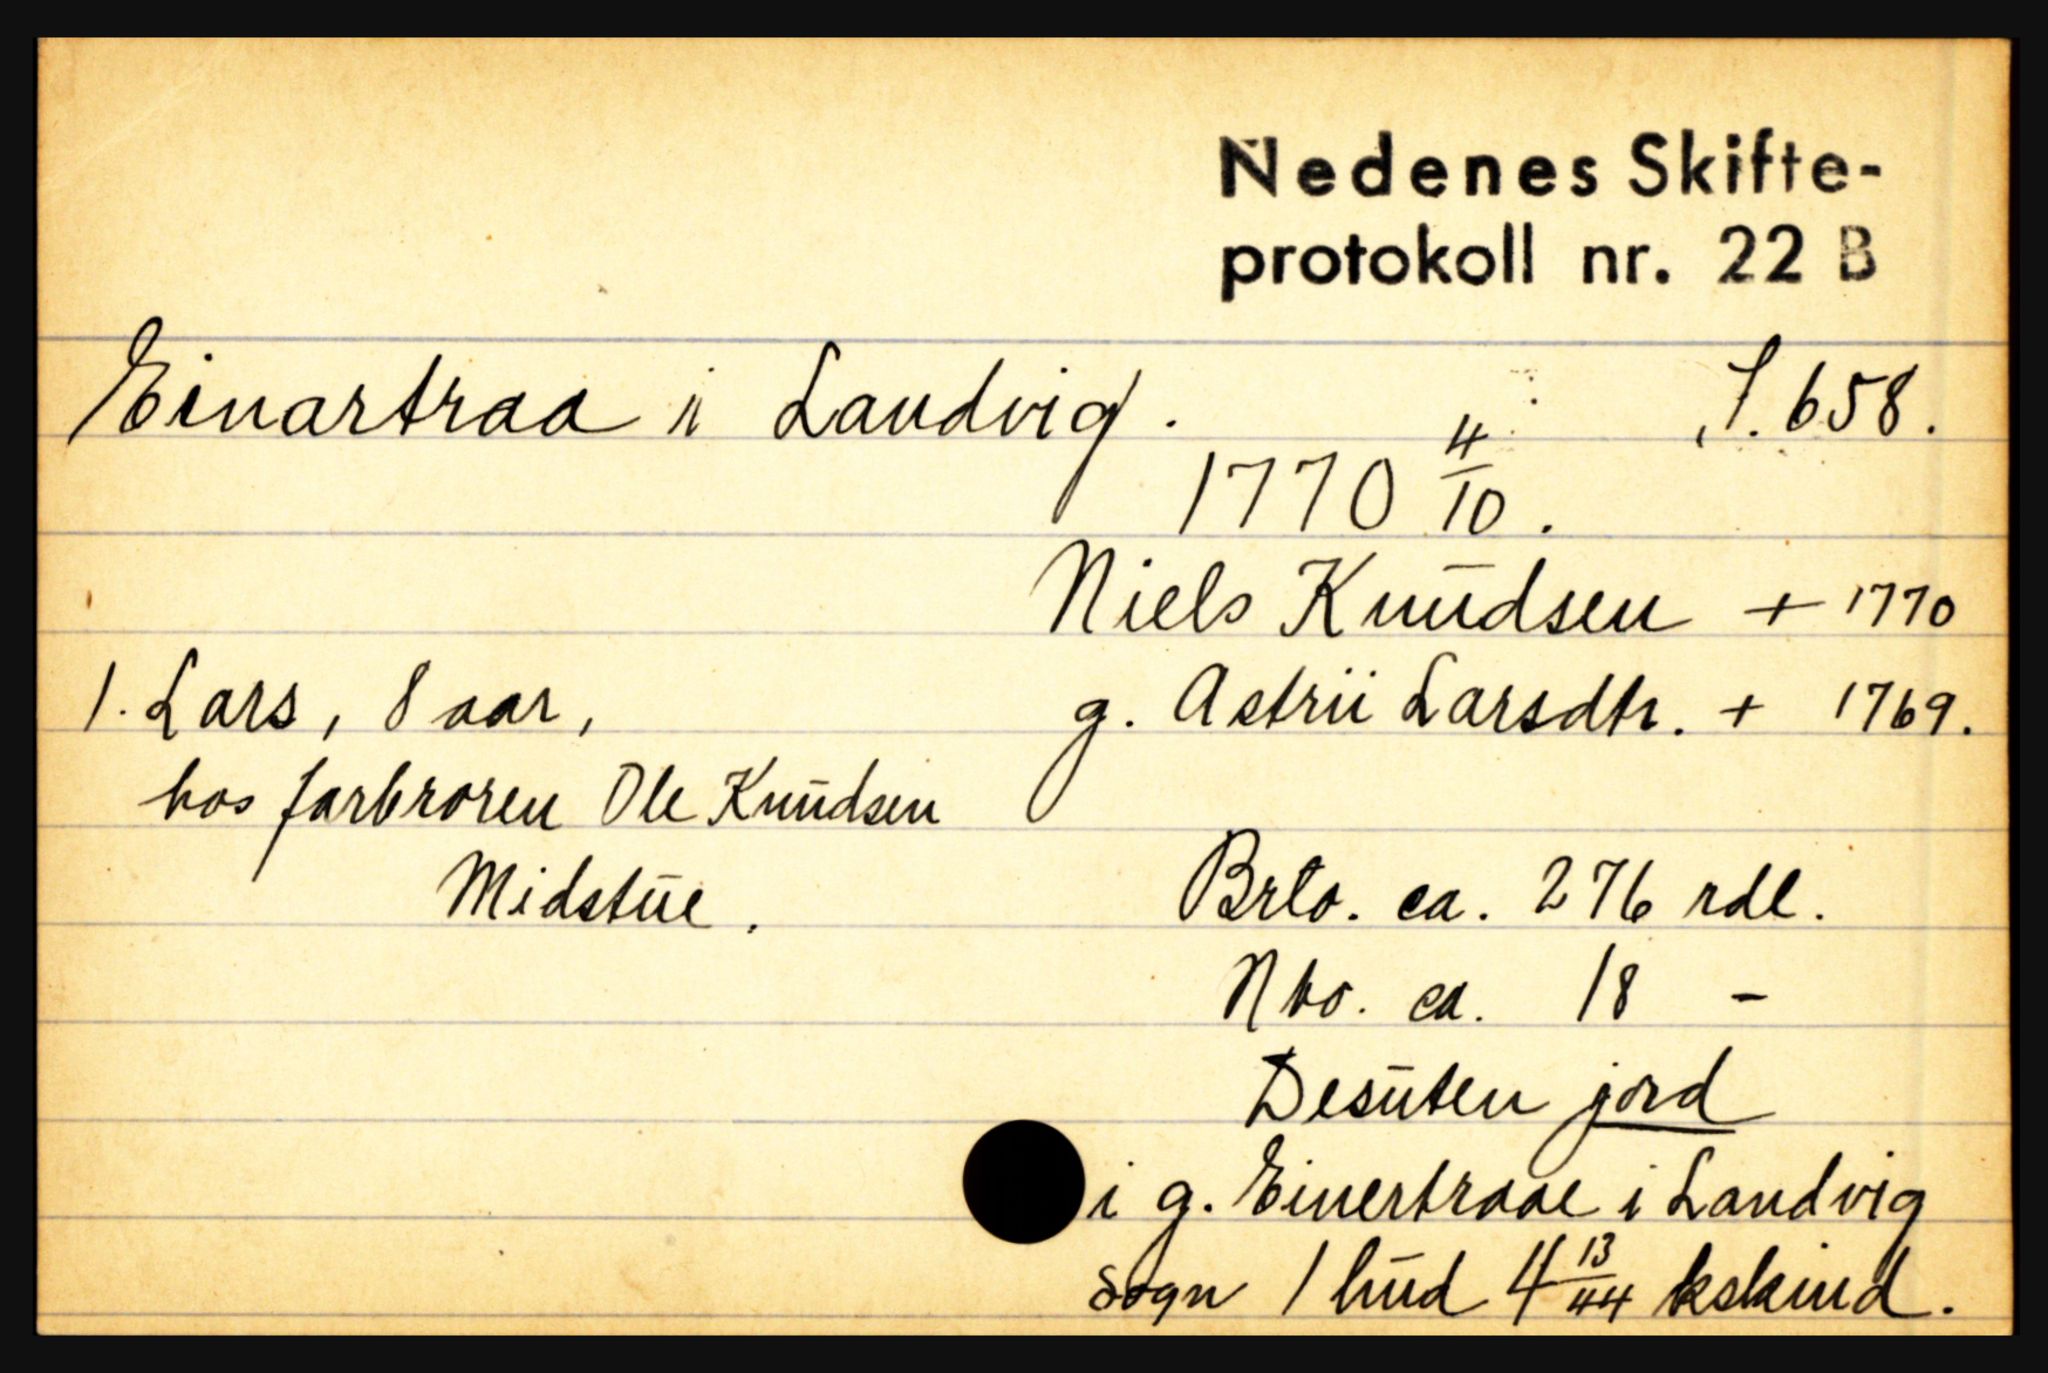 Nedenes Skifte-
protokoll nr. 22 B
Einartraa i Landvig.
S. 658.
1770 4/10.
Niels Knudsen + 1770
1. Lars, 8 aar,
g. Astrii Larsdtr. + 1769.
hos farbroren Ole Knudsen
Midstue.
Brto. ca. 276 rdl.
Nto. ca. 18 -
Desuten jord
i g. Einertraae i Landvig
sogn 1 hud 4 13/44 kskind.